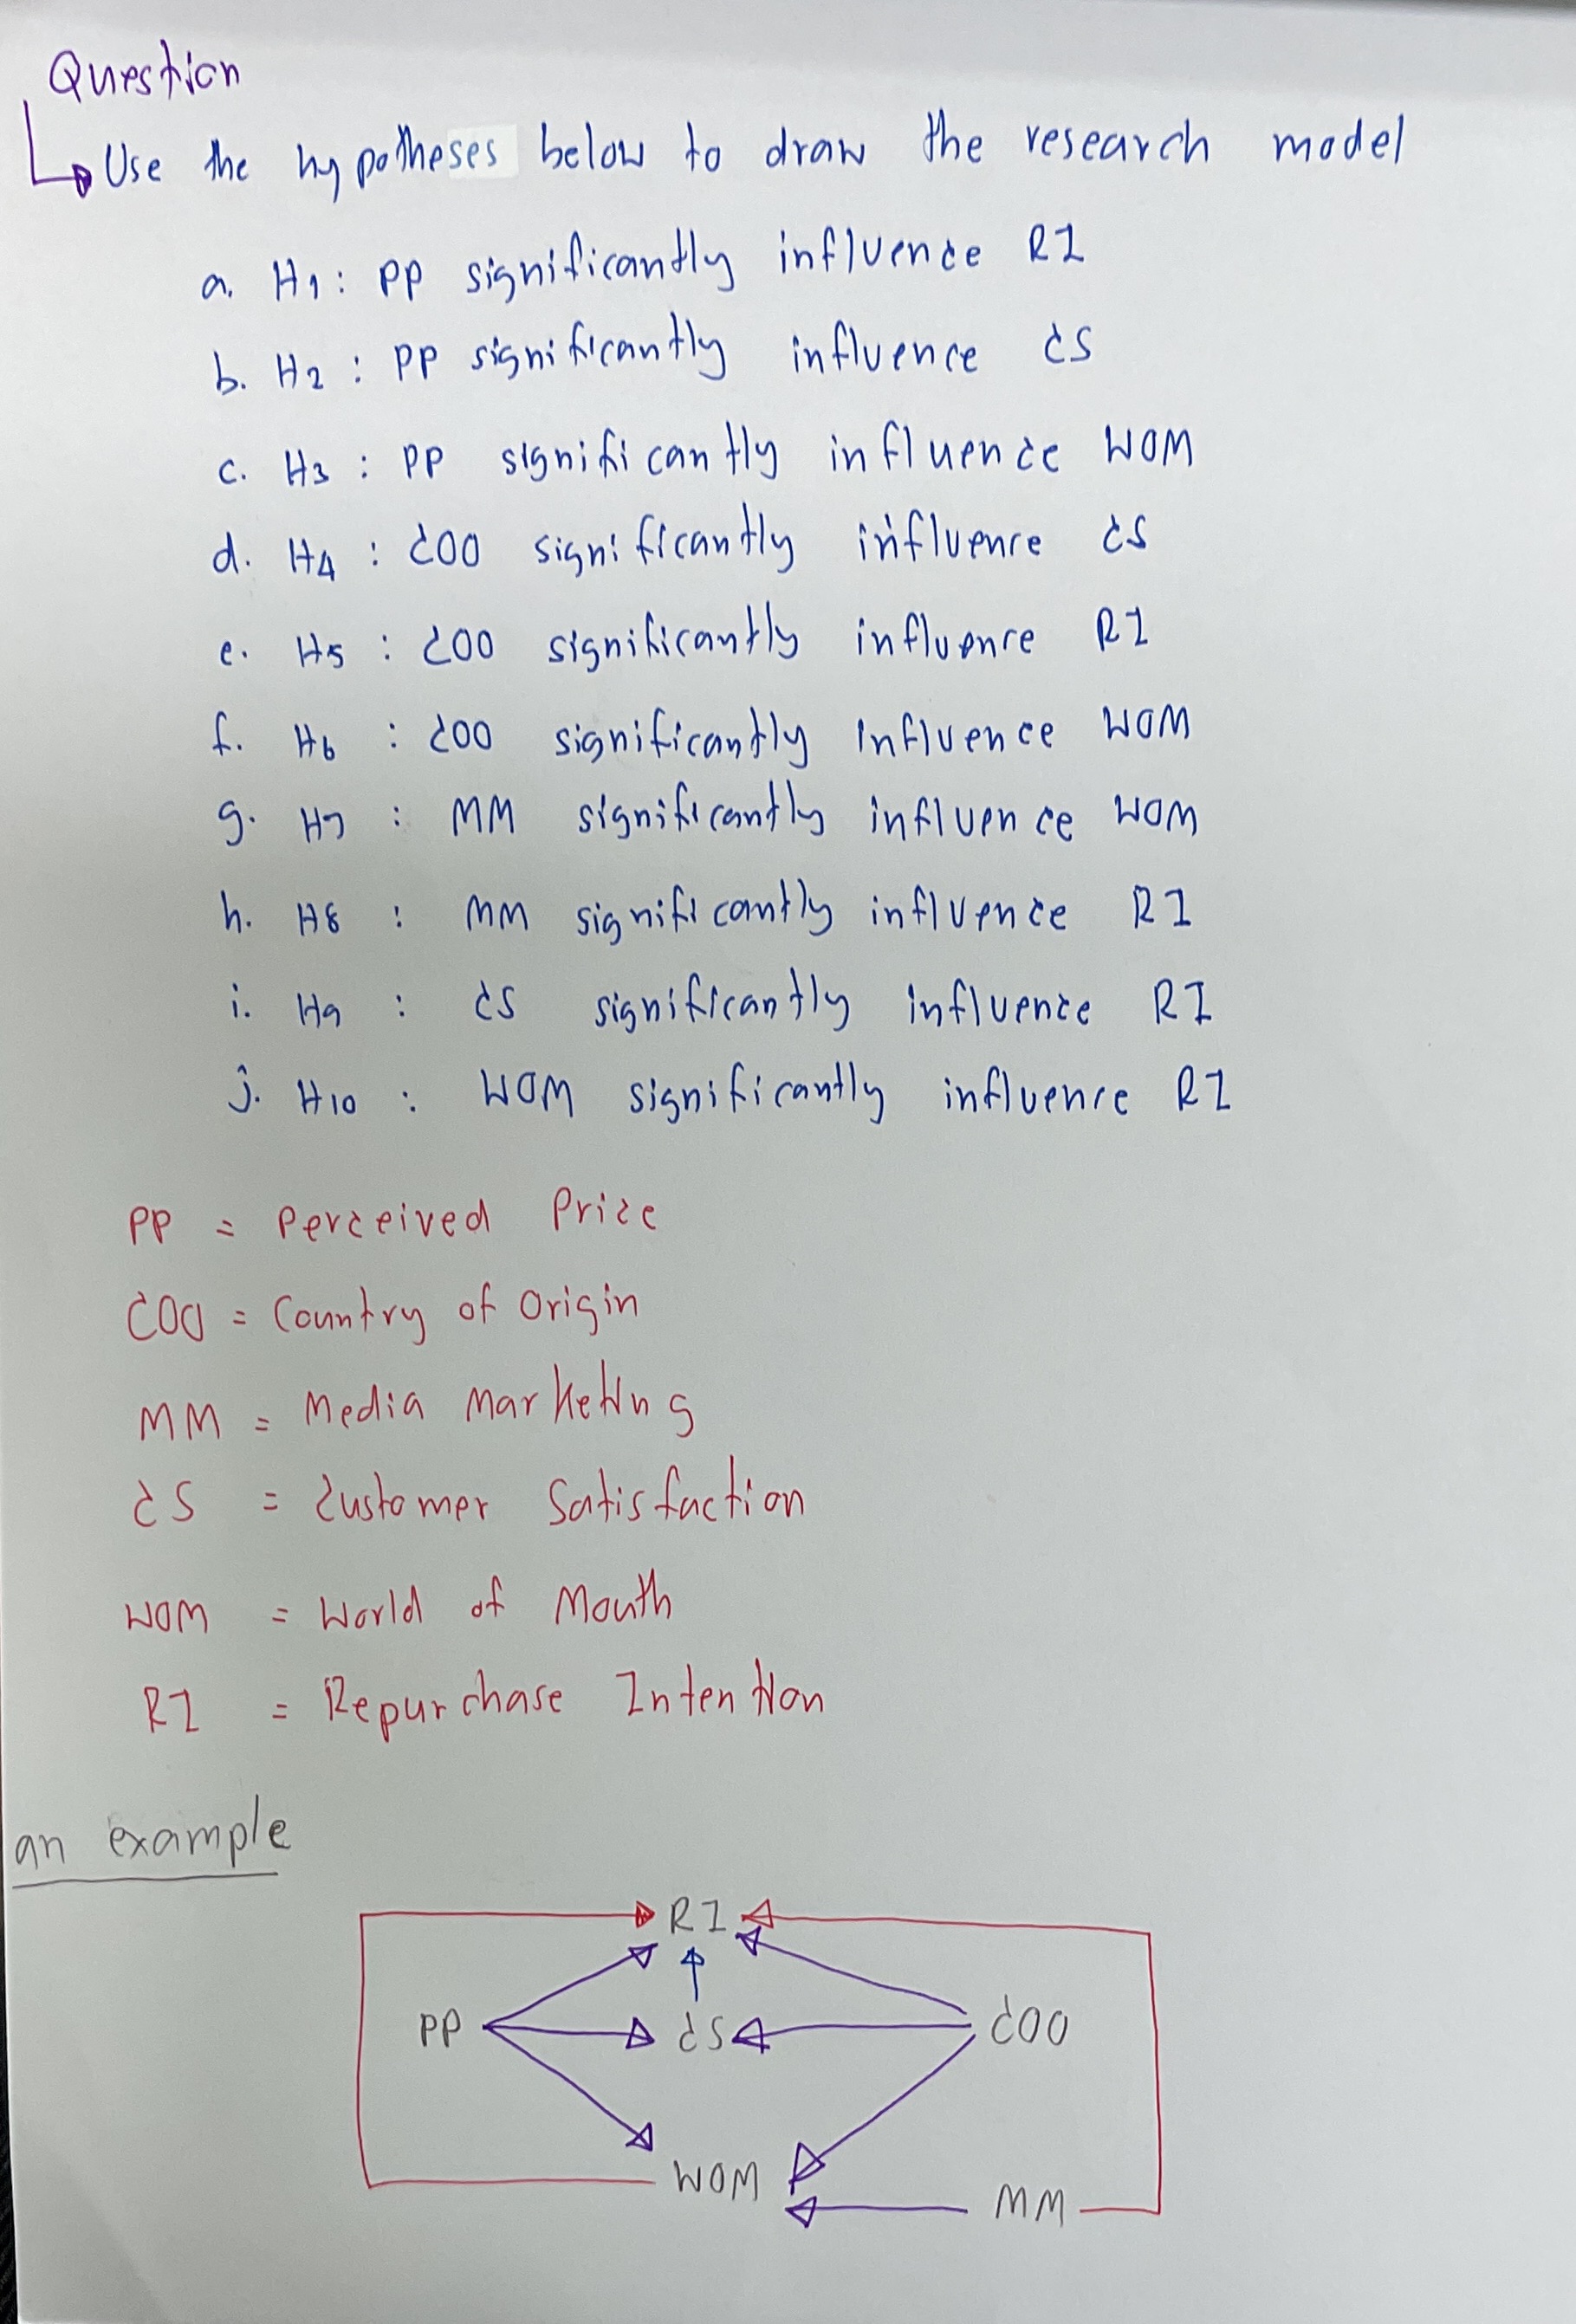 Question
Use the hypotheses below to draw the research model
a. H1 : PP significantly influence RI
b. H2 : PP significantly influence CS
c. H3 : PP significantly influence WOM
d. H4 : COO significantly influence CS
e. H5 : COO significantly influence RI
f. H6 : COO significantly influence WOM
g. H7 : MM significantly influence WOM
h. H8 : MM significantly influence RI
i. H9 : CS significantly influence RI
j. H10 : WOM significantly influence RI
PP = Perceived Price
COO = Country of Origin
MM = Media Marketing
CS = Customer Satisfaction
WOM = World of Mouth
RI = Repurchase Intention
an example
RI
PP CS COO
WOM MM